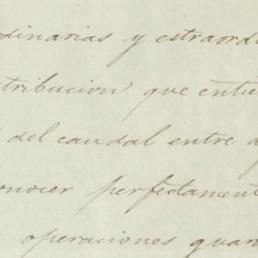 dinarias y estraordi
tribucion que entre
del caudal entre a
onocer perfectament
operaciones guar